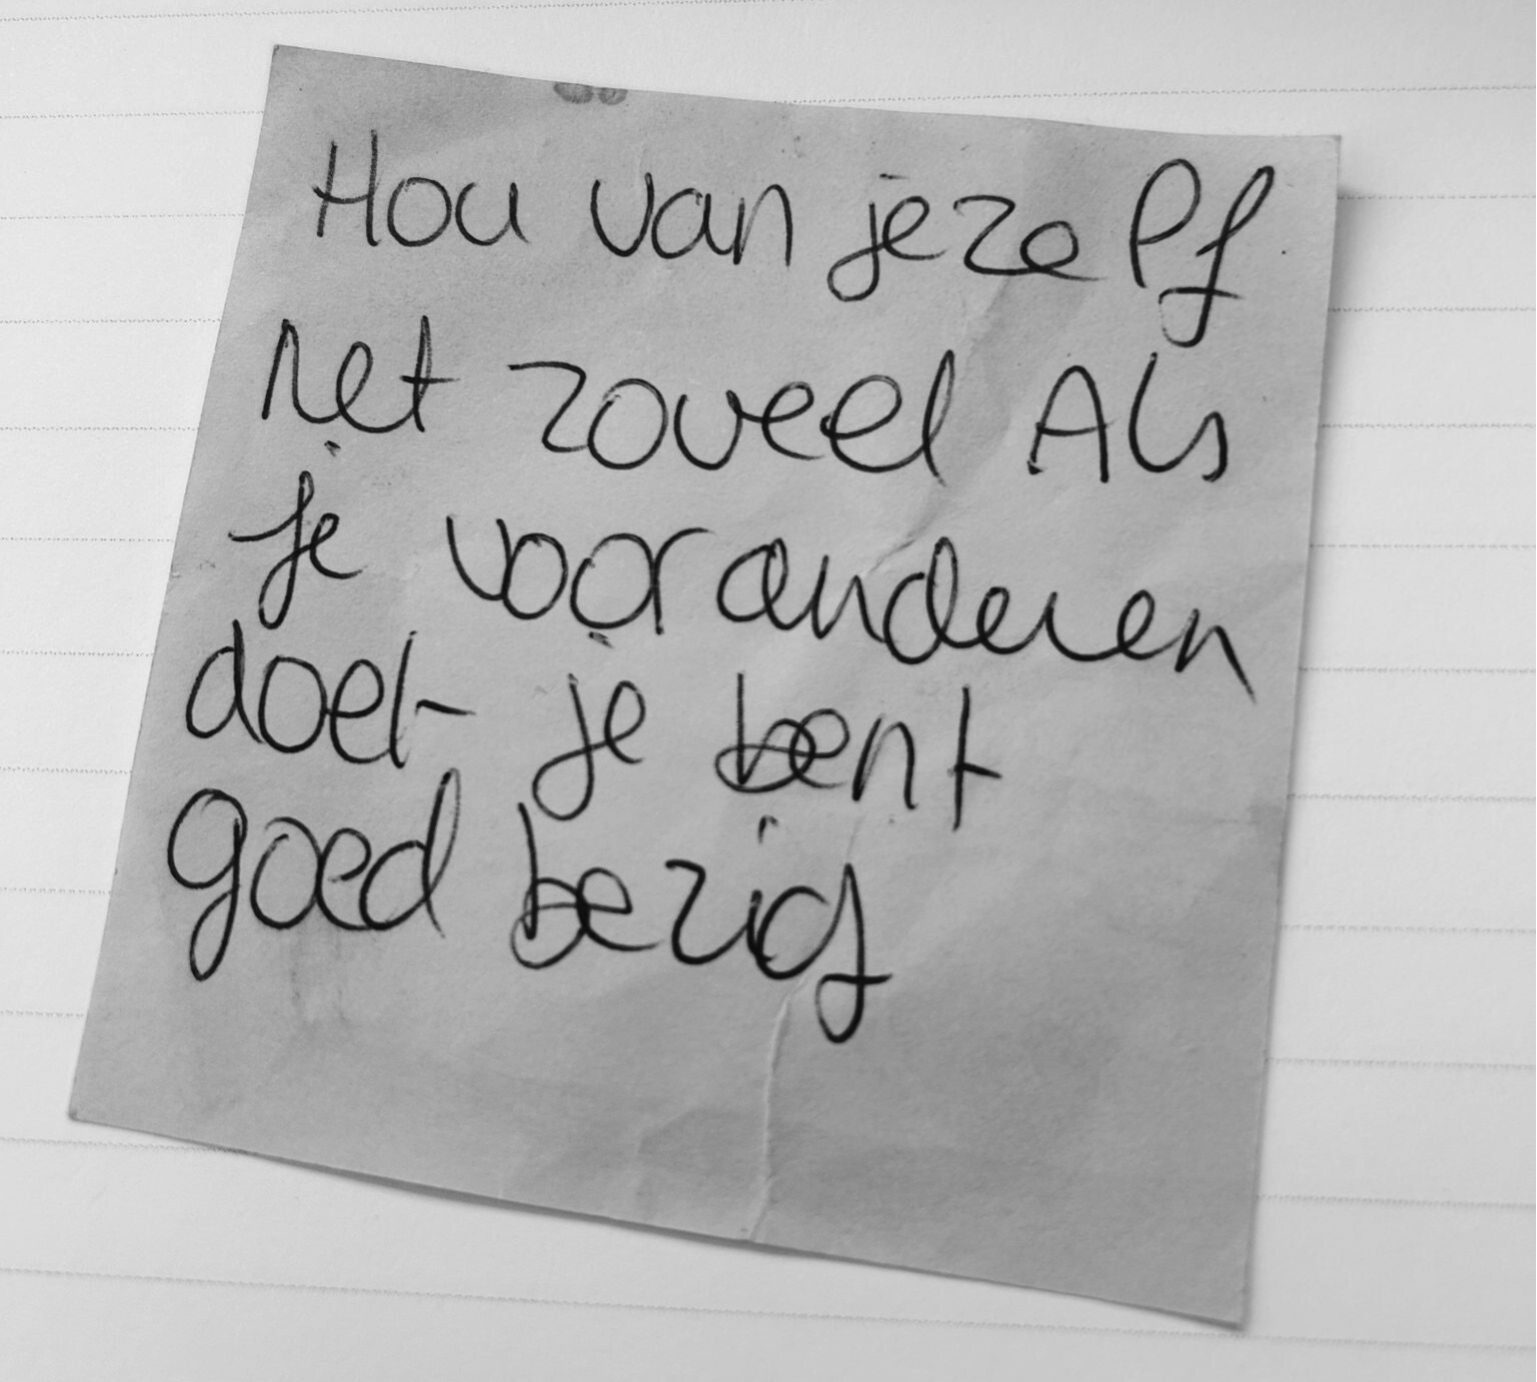 Hou van jezelf
net zoveel Als
je voor anderen
doet je bent
goed bezig